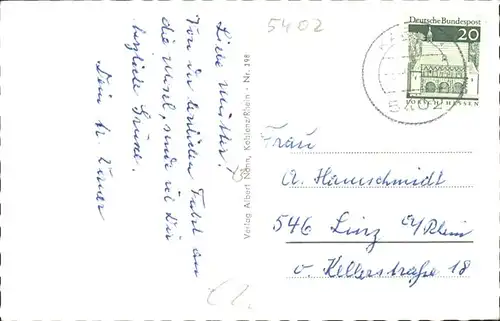 5402
Deutsche Bundespost
20
LORSCH/HESSEN
5402
Liebe
Von der herrlichen Fahrt an
die Mosel, sende ich Dir
herzliche Grüße.
Dein
Verlag Albert Nohn, Koblenz/Rhein - Nr. 398
Frau
A. Hammschmidt
546 Linz a/Rhein
v. Kellerstraße 18